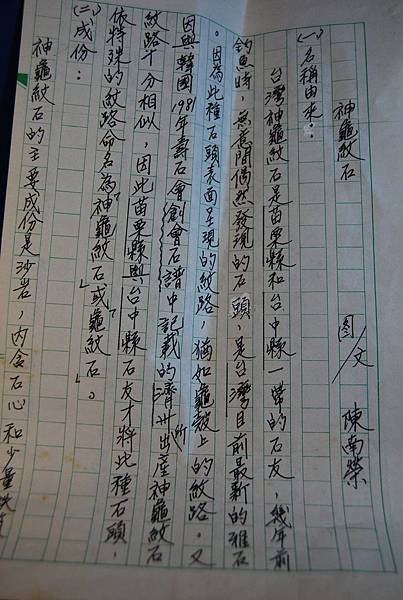 神龜紋石　　圖/文　陳南榮
(一)名稱由來：
台灣神龜紋石是苗栗縣和台中縣一帶的石友，幾年前
釣魚時，無意間偶然發現的石頭，是台灣目前最新的雅石
。因為此種石頭表面呈現的紋路，猶如龜殼上的紋路。又
因與韓國1981年壽石會創會石譜中記載的濟州所出產神龜紋石
紋路十分相似，因此苗栗縣與台中縣石友才將此種石頭，
依特殊的紋路命名為「神龜紋石」或「龜紋石」。
(二)成份：
神龜紋石的主要成份是沙岩，內含石心和少量